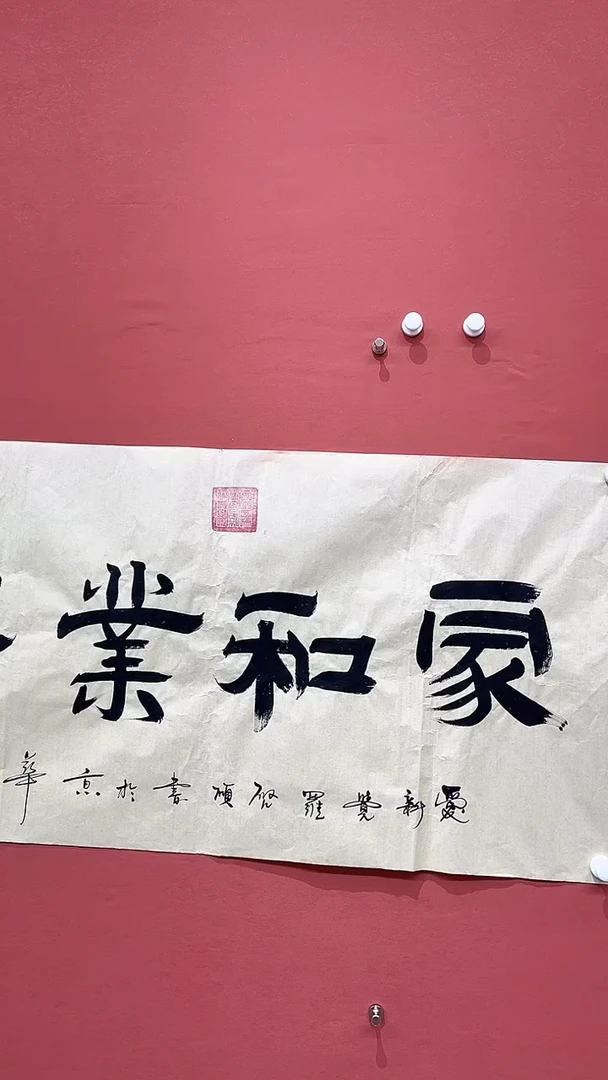 家和業
愛新覺羅啓碩書於京華